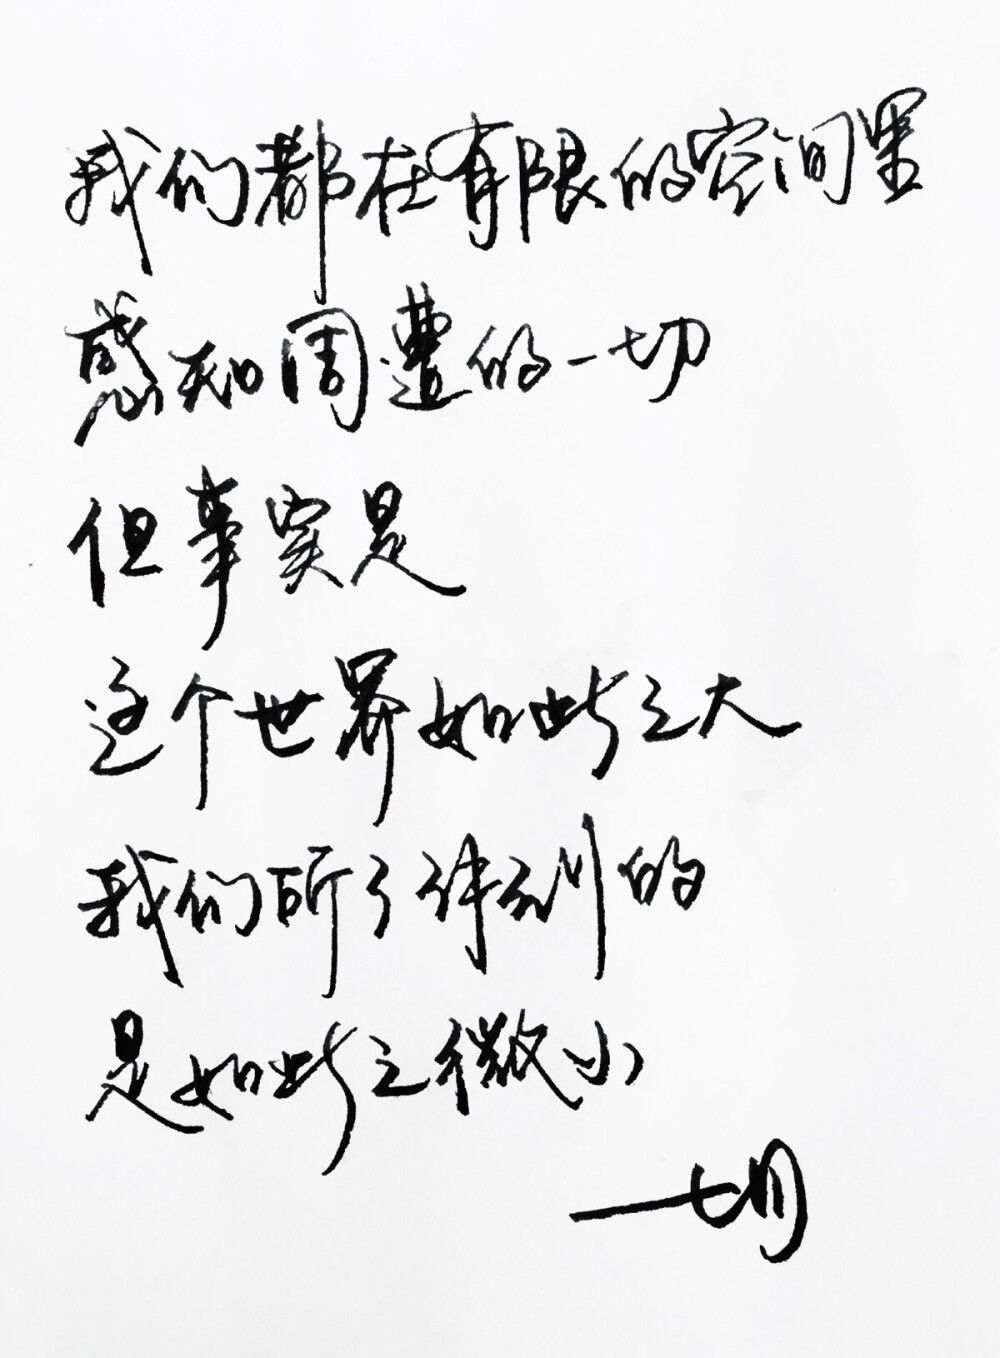 我们都在有限的空间里
感知周遭的一切
但事实是
这个世界如此之大
我们所了体到的
是如此之微小
——七月